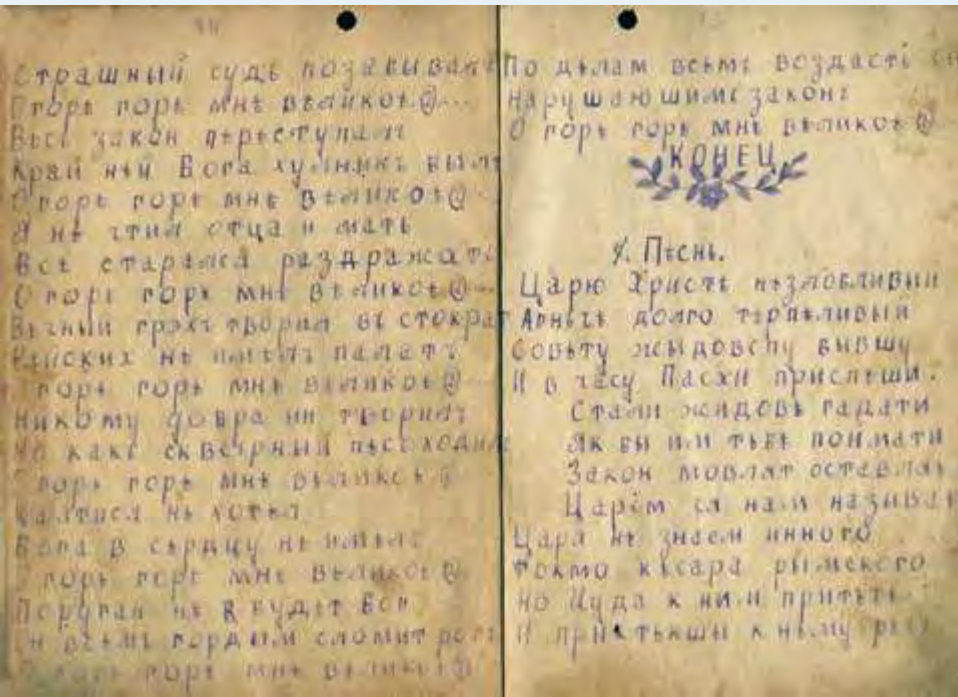 Страшный судъ позабывал
О горѣ горѣ мнѣ вѣликоѣ@...
Вѣсь закон пѣрѣступалъ
Край нѣй Бога хулникъ былъ
О горѣ горѣ мнѣ вѣликоѣ@...
Я нѣ чтил отца и мать
Всѣ старался раздражать
О горѣ горѣ мнѣ вѣликоѣ@...
Вѣчный грэхъ творил въ стократ
Райских нѣ имѣлъ палатъ
О горѣ горѣ мнѣ вѣликоѣ@...
Никому добра ни творилъ
Но какъ сквѣрный пѣсъ ходил
О горѣ горѣ мнѣ вѣликоѣ@
Каятися нѣ хотѣл
Бога в сѣрдцу нѣ имѣлъ
О горѣ горѣ мнѣ вѣликоѣ@
Поруган нѣ будѣт Бог
Он всѣмъ гордым сломит рогъ
О горѣ горѣ мнѣ вѣликоѣ@
По дѣлам всѣмъ воздастъ
Нарушаюшимъ законъ
О горѣ горѣ мнѣ вѣликоѣ@
КОНЕЦ
Пѣснь.
Царю Христѣ нѣзлобливый
Агньчѣ долго тѣрпѣливый
Совѣту жыдовску бывшу
И в часу Пасхи приспѣвши.
Стали жидовѣ гадати
Як бы им тѣбѣ поимати
Закон мовлат оставлаѣ
Царём ся нам называѣ
Царя нѣ знаѣм инного
токмо кѣсара рымского
Но Иуда к ним притѣчѣ
И притѣкшы к нѣму рѣчѣ